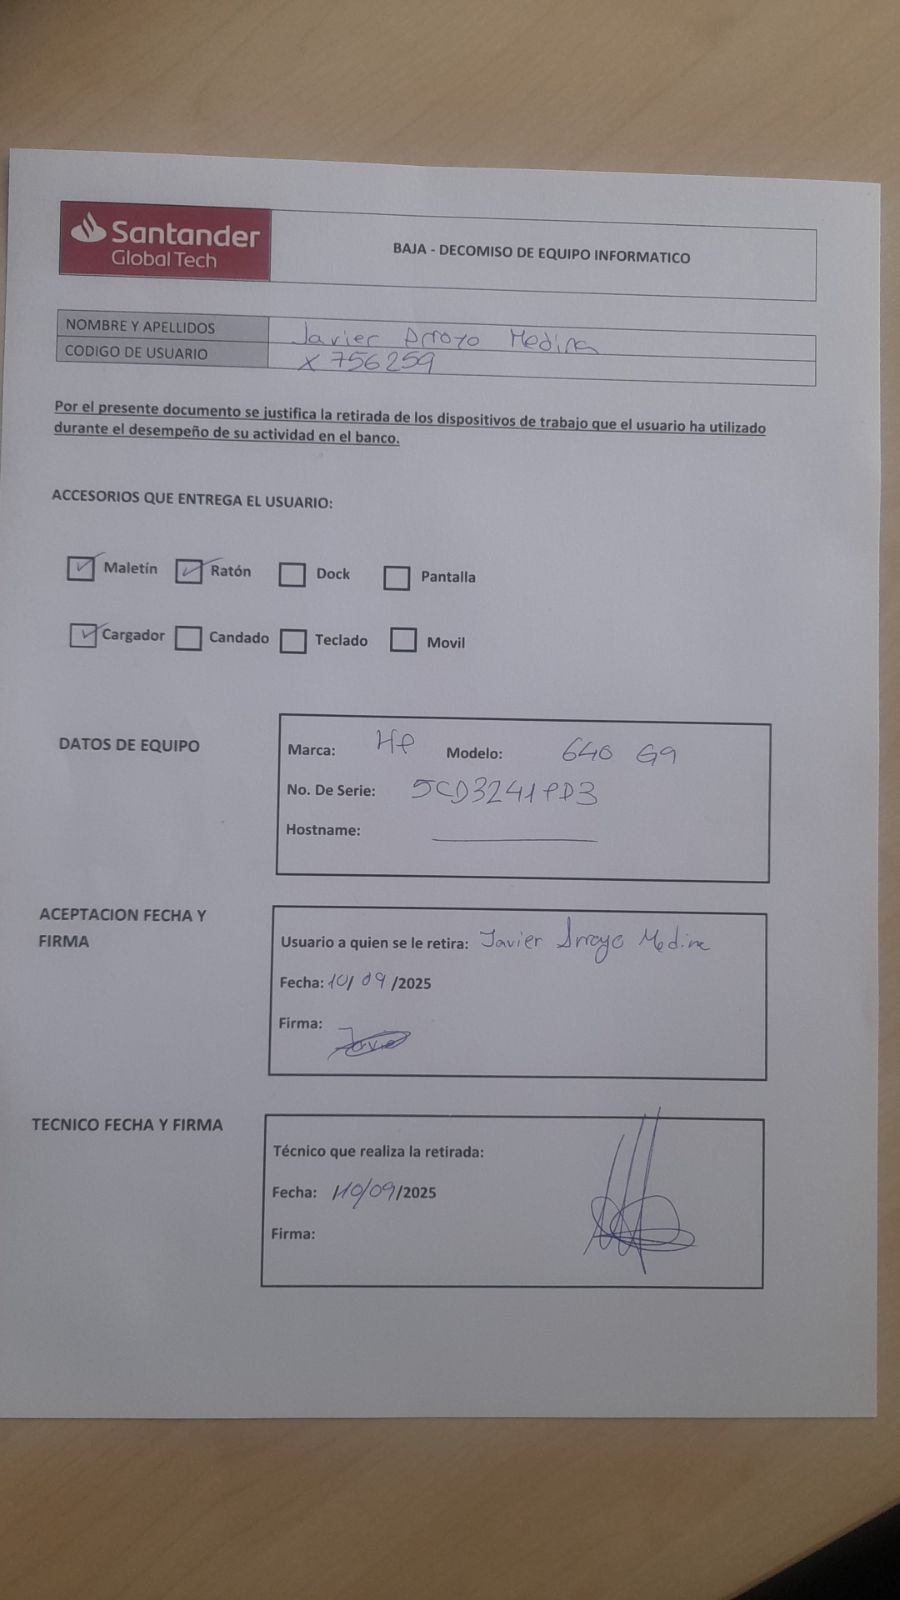 Santander
Global Tech
BAJA - DECOMISO DE EQUIPO INFORMATICO
NOMBRE Y APELLIDOS Javier Arroyo Medina
CODIGO DE USUARIO X756259
Por el presente documento se justifica la retirada de los dispositivos de trabajo que el usuario ha utilizado
durante el desempeño de su actividad en el banco.
ACCESORIOS QUE ENTREGA EL USUARIO:
Maletín Ratón Dock Pantalla
Cargador Candado Teclado Movil
DATOS DE EQUIPO
Marca: HP Modelo: 640 G9
No. De Serie: 5CD3241PD3
Hostname:
ACEPTACION FECHA Y
FIRMA
Usuario a quien se le retira: Javier Arroyo Medina
Fecha: 10/09/2025
Firma:
TECNICO FECHA Y FIRMA
Técnico que realiza la retirada:
Fecha: 10/09/2025
Firma: